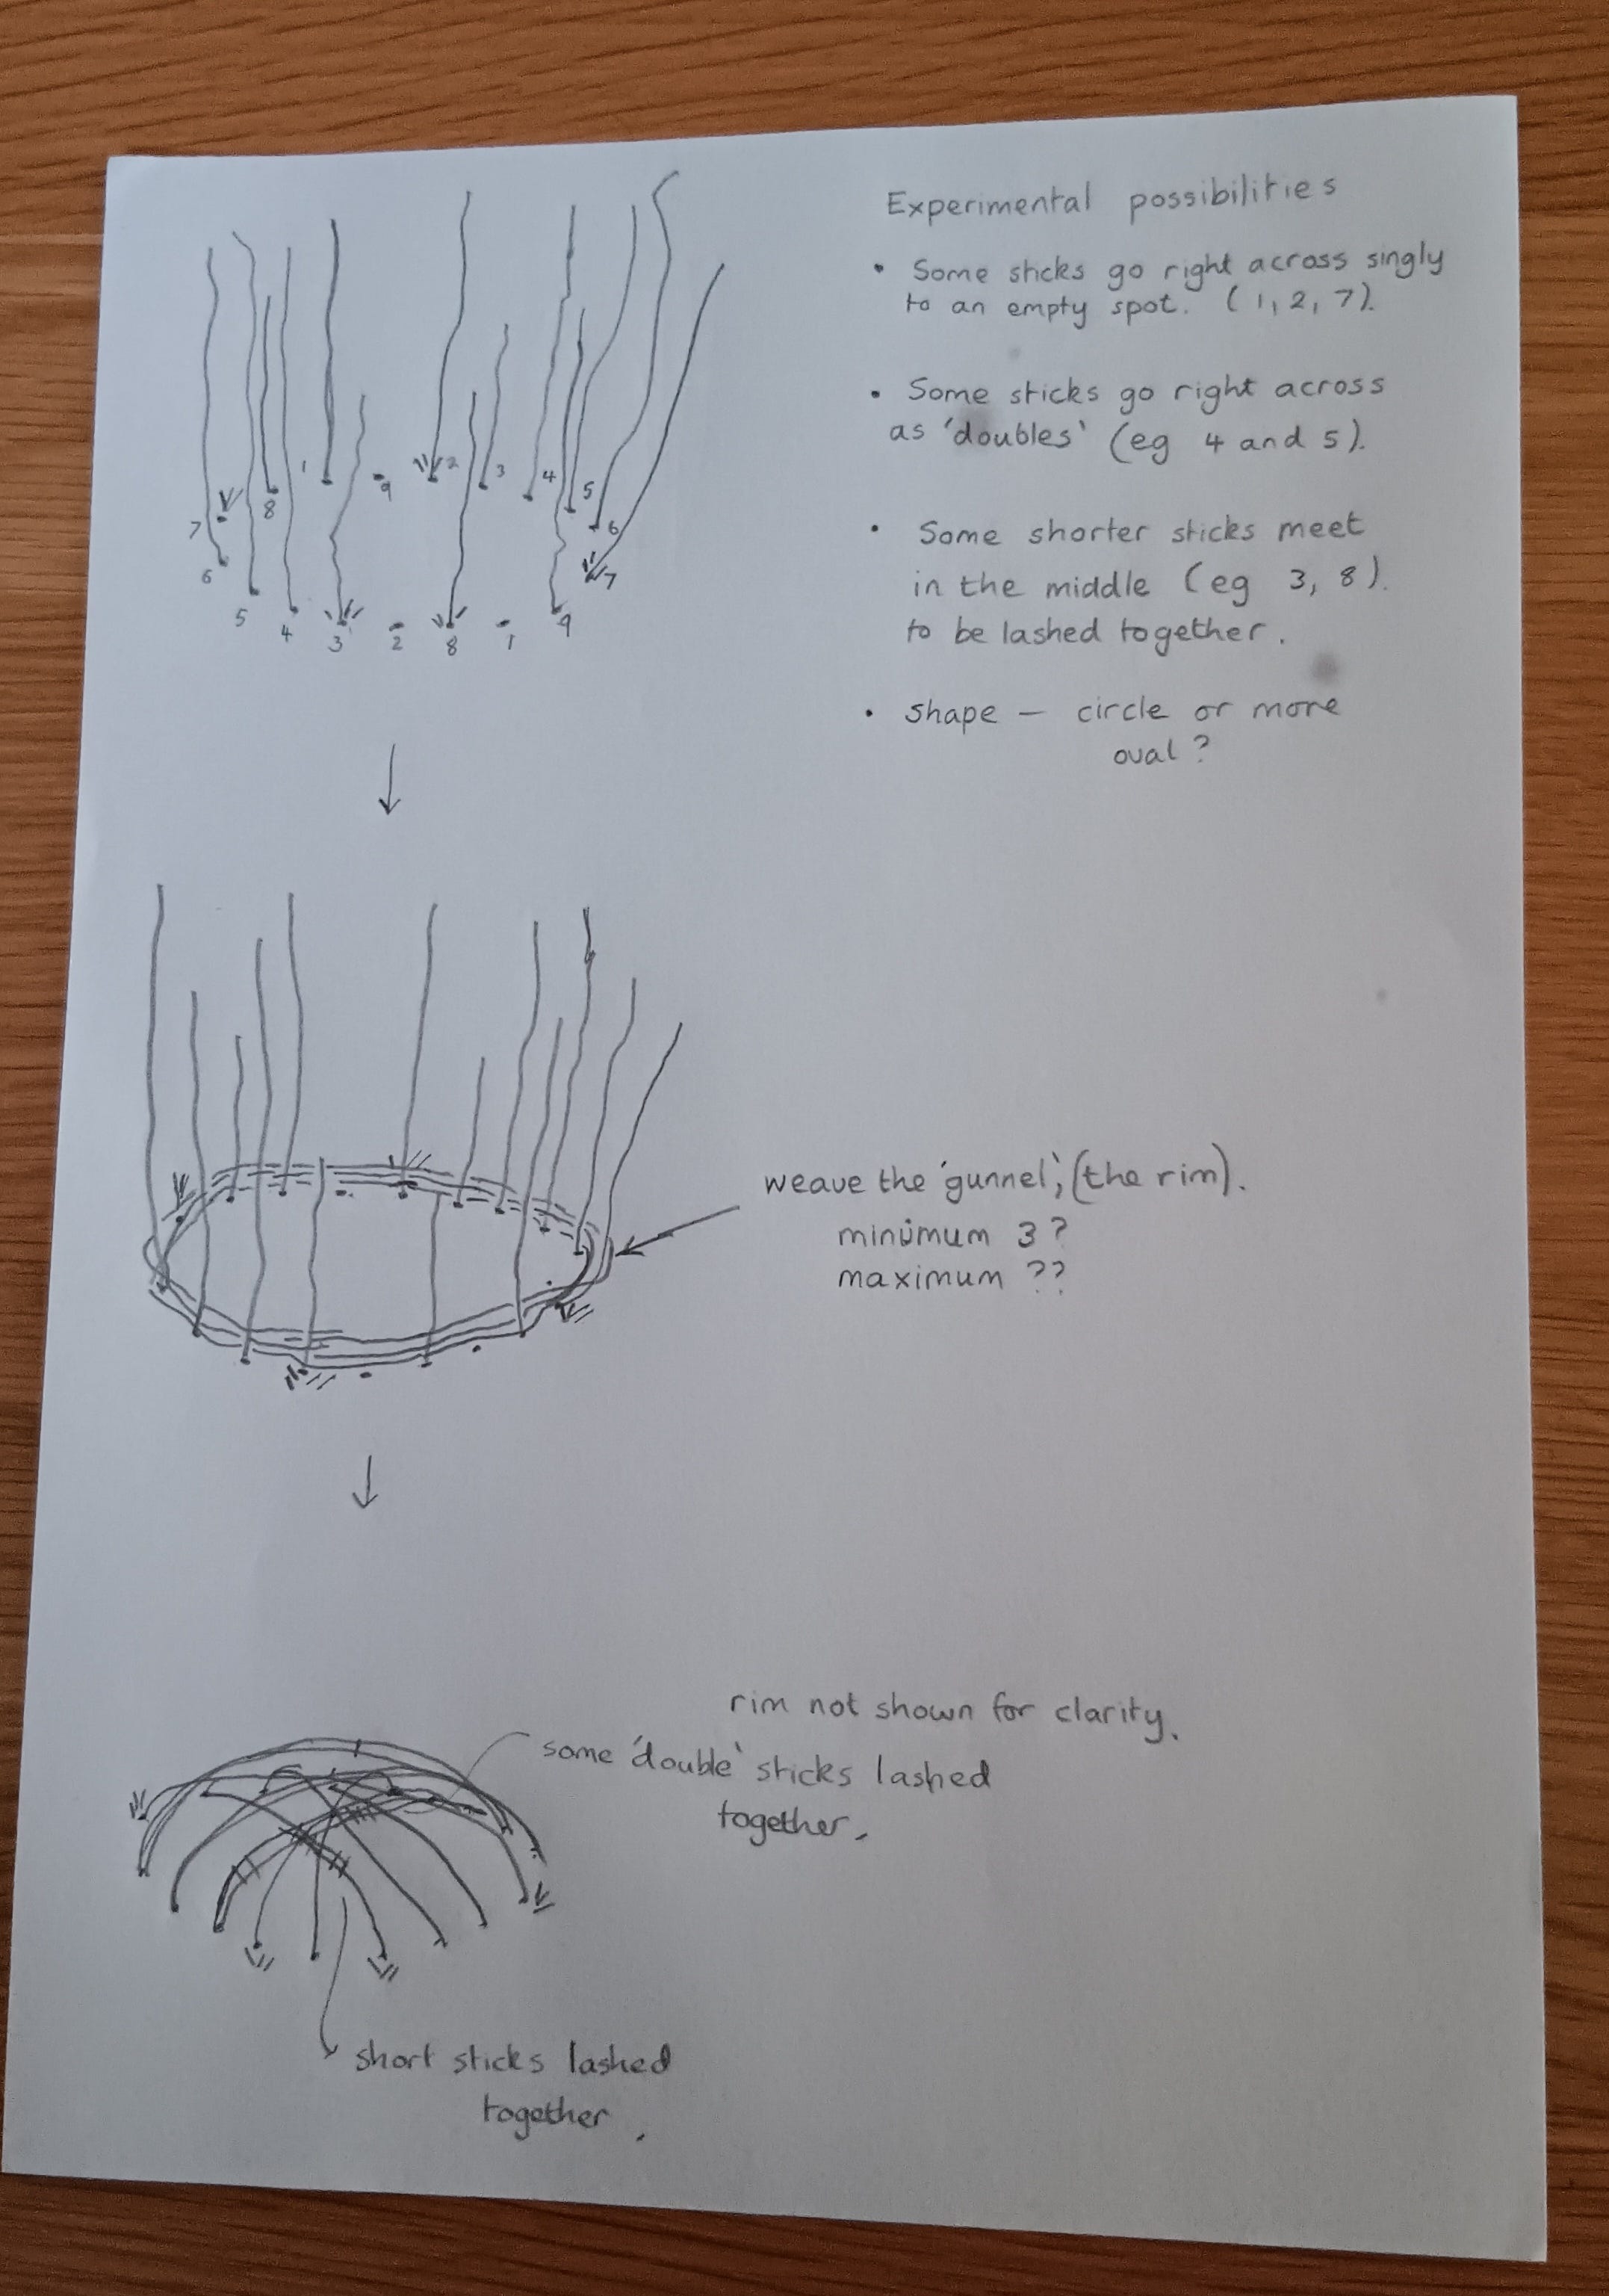 Experimental possibilities
• Some sticks go right across singly
to an empty spot. (1, 2, 7).
• Some sticks go right across
as 'doubles' (eg 4 and 5).
• Some shorter sticks meet
in the middle (eg 3, 8).
to be lashed together.
• shape — circle or more
oval?
1 9 2 3 4 5
7 8 6
6 7
5 4 3 2 8 1 9
weave the 'gunnel', (the rim).
minimum 3?
maximum ??
rim not shown for clarity.
some 'double' sticks lashed
together.
short sticks lashed
together.